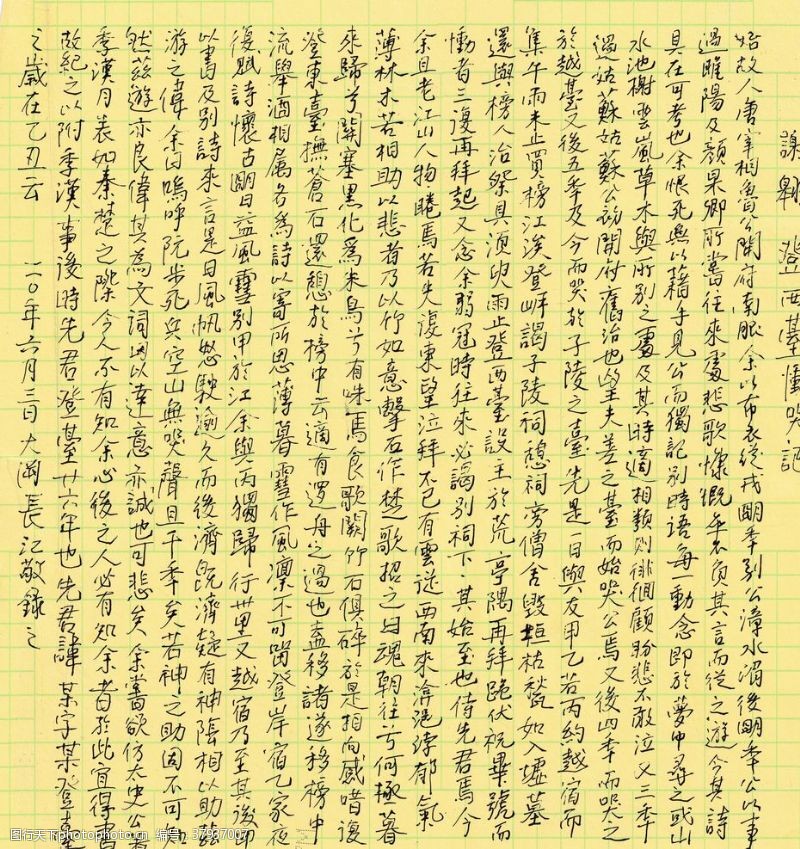 謝翱 登西臺慟哭記
始故人唐宰相魯公開府南服余以布衣從戎明季別公漳水湄後明季公以事
過睢陽及顏杲卿所嘗往來處悲歌慷慨卒不負其言而從之遊今其詩
具在可考也余恨死無以藉手見公而獨記別時語每一動念即於夢中尋之或山
水池榭雲嵐草木與所別之處及其時適相類則徘徊顧盼悲不敢泣又三季
過姑蘇姑蘇公初開府舊治也望夫差之臺而始哭公焉又後四季而哭之
於越臺又後五季及今而哭於子陵之臺先是一日與友甲乙若丙約越宿而
集午雨未止買榜江涘登岸謁子陵祠憩祠旁僧舍毀垣枯甃如入墟墓
還與榜人治祭具須臾雨止登西臺設主於荒亭隅再拜跪伏祝畢號而
慟者三復再拜起又念余弱冠時往來必謁別祠下其始至也侍先君焉今
余且老江山人物睠焉若失復東望泣拜不已有雲從西南來渰浥浡郁氣
薄林木若相助以悲者乃以竹如意擊石作楚歌招之曰魂朝往兮何極暮
來歸兮關塞黑化為朱鳥兮有咮焉食歌闋竹石俱碎於是相向感唶復
登東臺撫蒼石還憩於榜中云適有邏舟之過也盍移諸遂移榜中
流舉酒相屬各為詩以寄所思薄暮雪作風凜不可留登岸宿乙家夜
復賦詩懷古明日益風雪別甲於江余與丙獨歸行卅里又越宿乃至其後甲
以書及別詩來言是日風帆怒駛逾久而後濟既濟疑有神陰相以助茲
游之偉余曰嗚呼阮步死兵空山無哭聲且千季矣若神之助固不可知
然茲遊亦良偉其為文詞因以達意亦誠也可悲矣余嘗欲仿太史公著
季漢月表如秦楚之際今人不有知余心後之人必有知余者於此宜得書
故紀之以附季漢事後時先君登臺廿六年也先君諱某字某登臺
之歲在乙丑云 二〇年六月三日大岡長江敬錄之
图行天下 photophoto.cn 编号:37937007